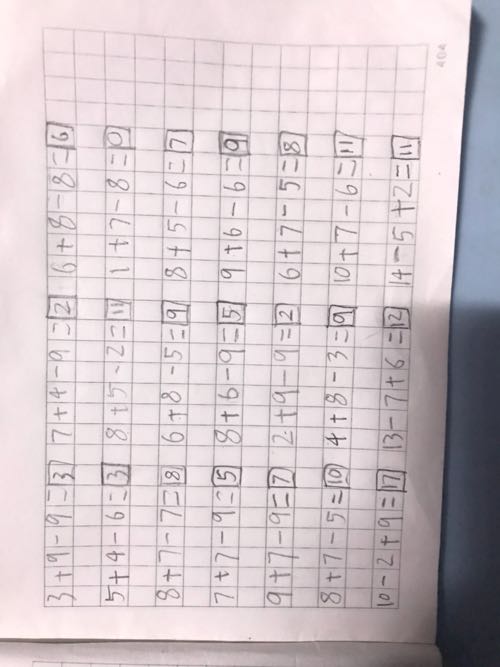 3+9-9=3 7+4-9=2 6+8-8=6
5+4-6=3 8+5-2=11 1+7-8=0
8+7-7=8 6+8-5=9 8+5-6=7
7+7-9=5 8+6-9=5 9+6-6=9
9+7-9=7 2+9-9=2 6+7-5=8
8+7-5=10 4+8-3=9 10+7-6=11
10-2+9=17 13-7+6=12 14-5+2=11
404